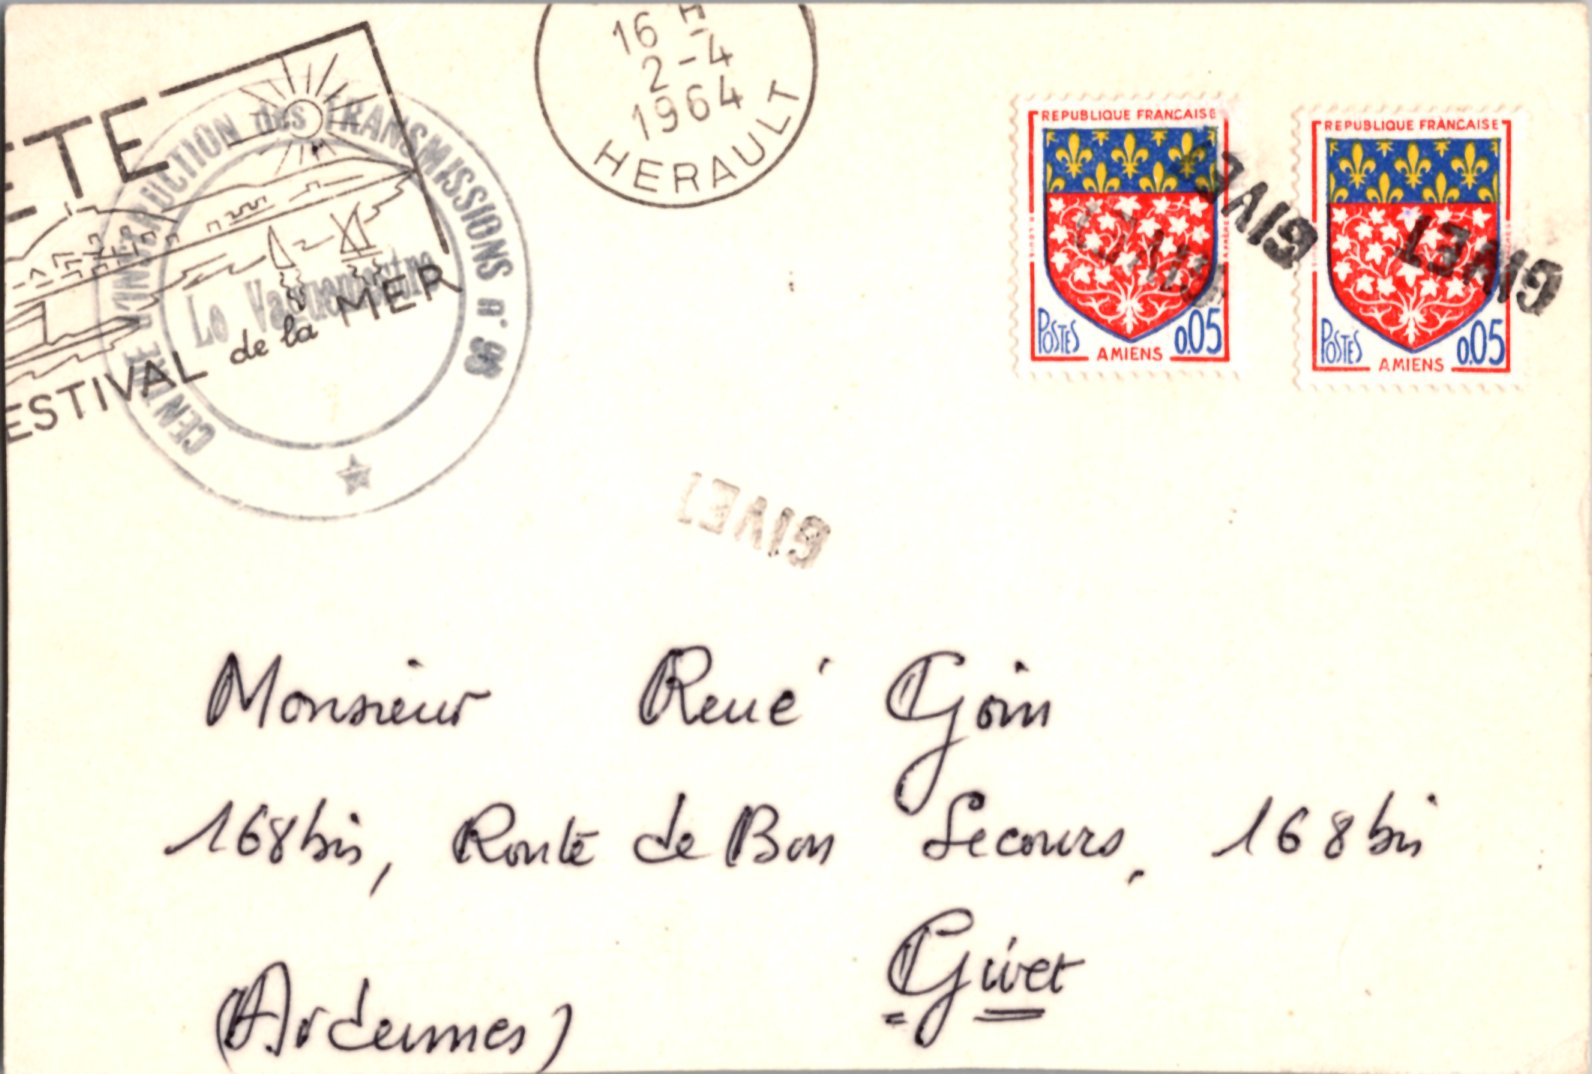 ETE
FESTIVAL de la MER
CENTRE D'INSTRUCTION des TRANSMISSIONS n° 98
Le Vaguemestre
16 H
2-4
1964
HERAULT
REPUBLIQUE FRANCAISE
POSTES
0.05
AMIENS
REPUBLIQUE FRANCAISE
POSTES
0.05
AMIENS
GIVET
GIVET
GIVET
GIVET
Monsieur René Goin
168 bis, Route de Bon Secours, 168 bis
Givet
(Ardennes)